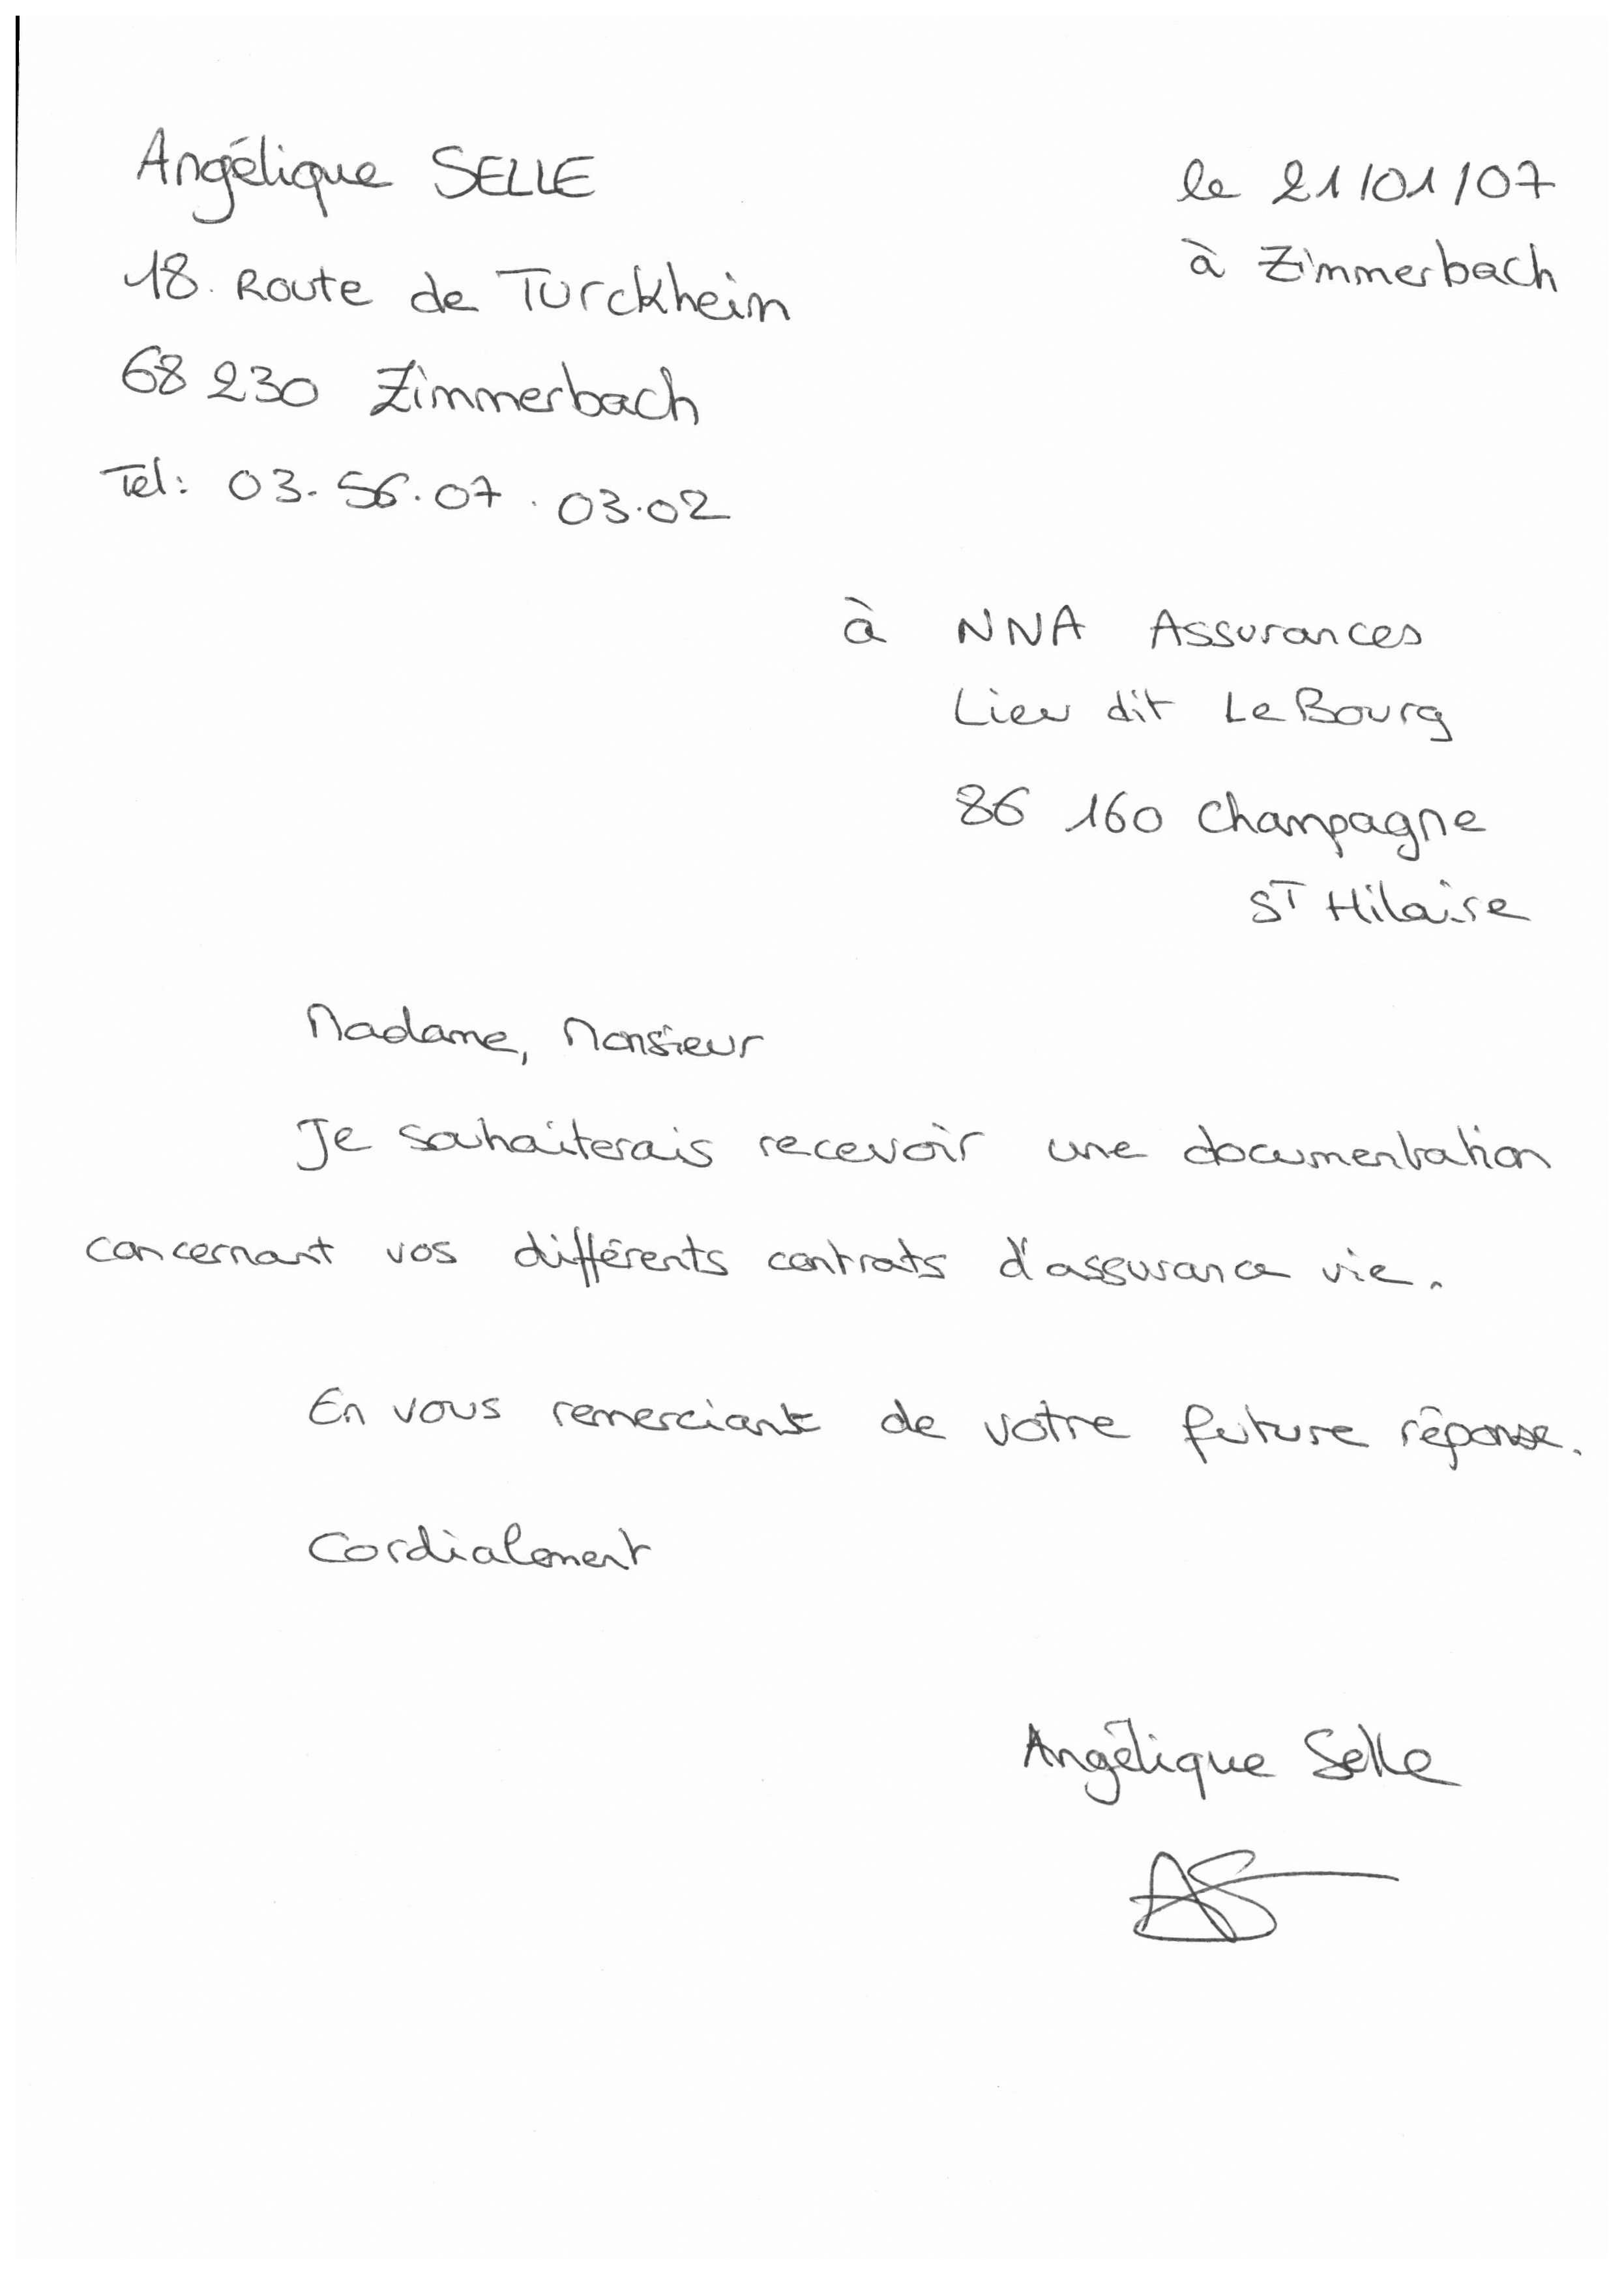 Angélique SELLE
le 21/01/07
18. Route de Turckheim
à Zimmerbach
68 230 Zimmerbach
Tel: 03.56.07.03.02
à NNA Assurances
Lieu dit Le Bourg
86 160 Champagne
ST Hilaire
Madame, Monsieur
Je souhaiterais recevoir une documentation
concernant vos différents contrats d'assurance vie.
En vous remerciant de votre future réponse.
Cordialement
Angélique Selle
AS